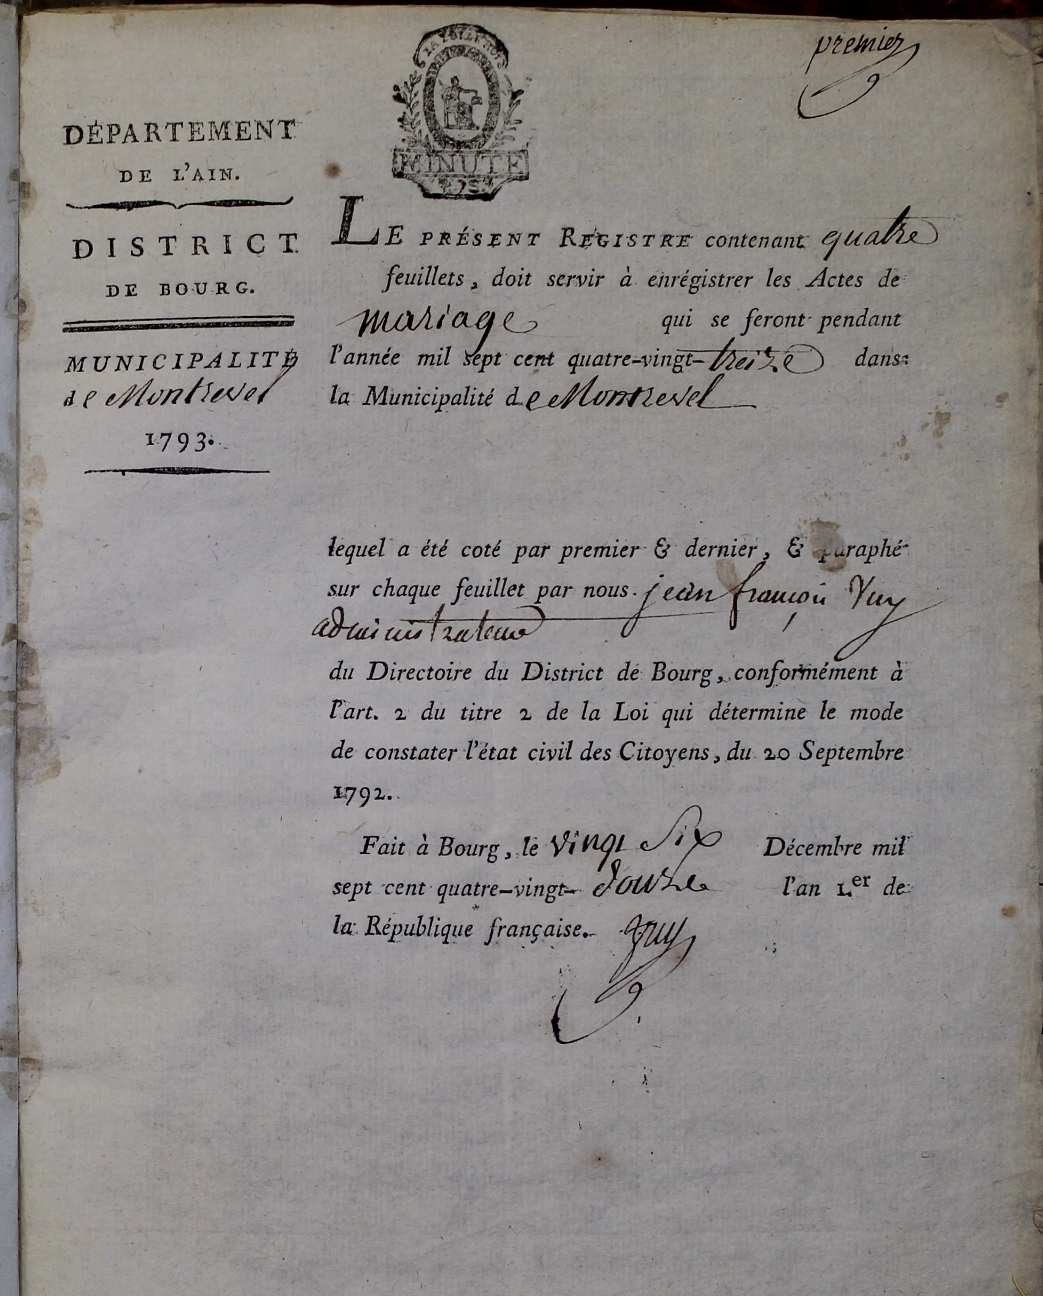 premier
LA LOI ET LE ROI
MINUTE
DÉPARTEMENT
DE L'AIN.
DISTRICT
DE BOURG.
MUNICIPALITÉ
de Montrevel
1793.
LE PRÉSENT REGISTRE contenant quatre
feuillets, doit servir à enrégistrer les Actes de
mariage qui se feront pendant
l'année mil sept cent quatre-vingt-treize dans
la Municipalité de Montrevel
lequel a été coté par premier & dernier, & paraphé
sur chaque feuillet par nous jean françois Vuy
administrateur
du Directoire du District de Bourg, conformément à
l'art. 2 du titre 2 de la Loi qui détermine le mode
de constater l'état civil des Citoyens, du 20 Septembre
1792.
Fait à Bourg, le vingt Six Décembre mil
sept cent quatre-vingt-douze l'an 1.er de
la République française. Vuy